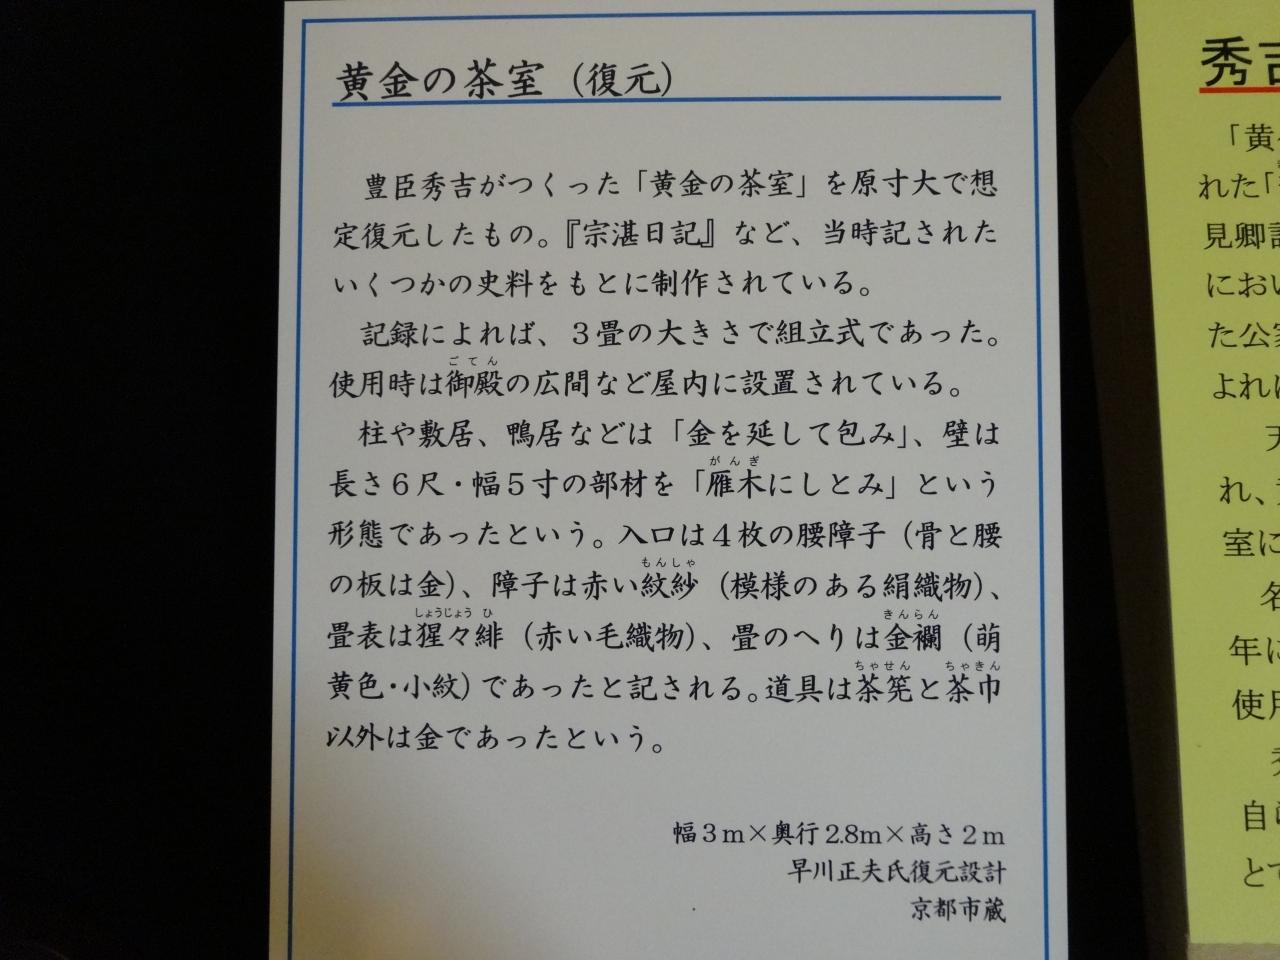 黄金の茶室（復元）
豊臣秀吉がつくった「黄金の茶室」を原寸大で想
定復元したもの。『宗湛日記』など、当時記された
いくつかの史料をもとに制作されている。
記録によれば、３畳の大きさで組立式であった。
ごてん
使用時は御殿の広間など屋内に設置されている。
柱や敷居、鴨居などは「金を延して包み」、壁は
がんぎ
長さ６尺・幅５寸の部材を「雁木にしとみ」という
形態であったという。入口は４枚の腰障子（骨と腰
もんしゃ
の板は金）、障子は赤い紋紗（模様のある絹織物）、
しょうじょう ひ きんらん
畳表は猩々緋（赤い毛織物）、畳のへりは金襴（萌
ちゃせん ちゃきん
黄色・小紋）であったと記される。道具は茶筅と茶巾
以外は金であったという。
幅３ｍ×奥行2.8m×高さ２ｍ
早川正夫氏復元設計
京都市蔵
秀吉
「黄
れた「
見卿
におい
た公家
よれば
天
れ、
室に
名
年に
使用
自
とて